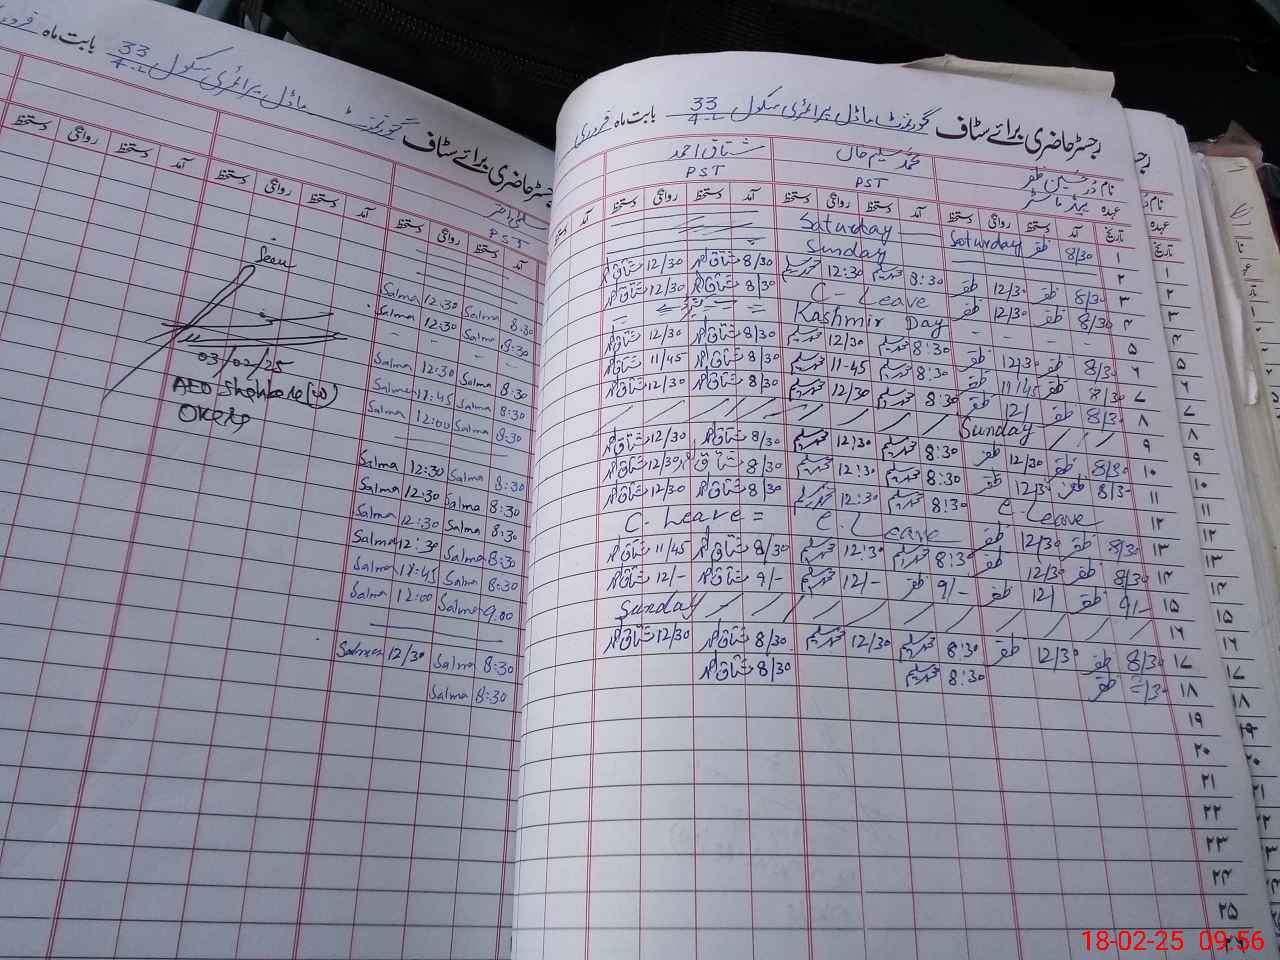 رجسٹر حاضری برائے سٹاف گورنمنٹ ماڈل پرائمری سکول 33/4-L بابت ماہ فروری
نام
محمد سلیم خان
مشتاق احمد
عہدہ ہیڈ ماسٹر
PST
PST
تاریخ آمد دستخط روانگی دستخط آمد دستخط روانگی دستخط آمد دستخط روانگی دستخط آمد دستخط
۱ 8/30 ظفر Saturday Saturday
۲ Sunday
۳ 8/30 ظفر 12/30 ظفر 8:30 محمد سلیم 12:30 محمد سلیم 8/30 مشتاق 12/30 مشتاق
۴ 8/30 ظفر 12/30 ظفر C-Leave 8/30 مشتاق 12/30 مشتاق
۵ - - - Kashmir Day
۶ 8/30 ظفر 12/30 ظفر 8:30 محمد سلیم 12/30 محمد سلیم 8/30 مشتاق 12/30 مشتاق
۷ 8/30 ظفر 11/45 ظفر 8:30 محمد سلیم 11-45 محمد سلیم 8/30 مشتاق 11/45 مشتاق
۸ 8/30 ظفر 12/ ظفر 8:30 محمد سلیم 12/30 محمد سلیم 8/30 مشتاق 12/30 مشتاق
۹ / / Sunday / / / / / / / /
۱۰ 8/30 ظفر 12/30 ظفر 8:30 محمد سلیم 12:30 محمد سلیم 8/30 مشتاق 12/30 مشتاق
۱۱ 8/30 ظفر 12/30 ظفر 8:30 محمد سلیم 12:30 محمد سلیم 8/30 مشتاق 12/30 مشتاق
۱۲ C.Leave 8:30 محمد سلیم 12:30 محمد سلیم 8/30 مشتاق 12/30 مشتاق
۱۳ 8/30 ظفر 12/30 ظفر C.Leave C-Leave =
۱۴ 8/30 ظفر 12/30 ظفر 8:30 محمد سلیم 12:30 محمد سلیم 8/30 مشتاق 11/45 مشتاق
۱۵ 9/- ظفر 12/ ظفر 9/- ظفر 12/- محمد سلیم 9/- مشتاق 12/- مشتاق
۱۶ / / / / / / / / / / Sunday
۱۷ 8/30 ظفر 12/30 ظفر 8:30 محمد سلیم 12/30 محمد سلیم 8/30 مشتاق 12/30 مشتاق
۱۸ ظفر 8:30 محمد سلیم 8/30 مشتاق
۱۹
۲۰
۲۱
۲۲
۲۳
۲۴
۲۵
رجسٹر حاضری برائے سٹاف گورنمنٹ ماڈل پرائمری سکول 33/4-L بابت ماہ فروری
PST
آمد دستخط روانگی دستخط آمد دستخط روانگی دستخط آمد دستخط روانگی دستخط
8:30 Salma 12:30 Salma
8:30 Salma 12:30 Salma
- - - -
8:30 Salma 12:30 Salma
8:30 Salma 11:45 Salma
8:30 Salma 12:00 Salma
8:30 Salma 12:30 Salma
8:30 Salma 12:30 Salma
8:30 Salma 12:30 Salma
8:30 Salma 12:30 Salma
8:30 Salma 11:45 Salma
9:00 Salma 12:00 Salma
8:30 Salma 12/30 Salma
8:30 Salma
Seen
03/02/25
AEO
18-02-25 09:56